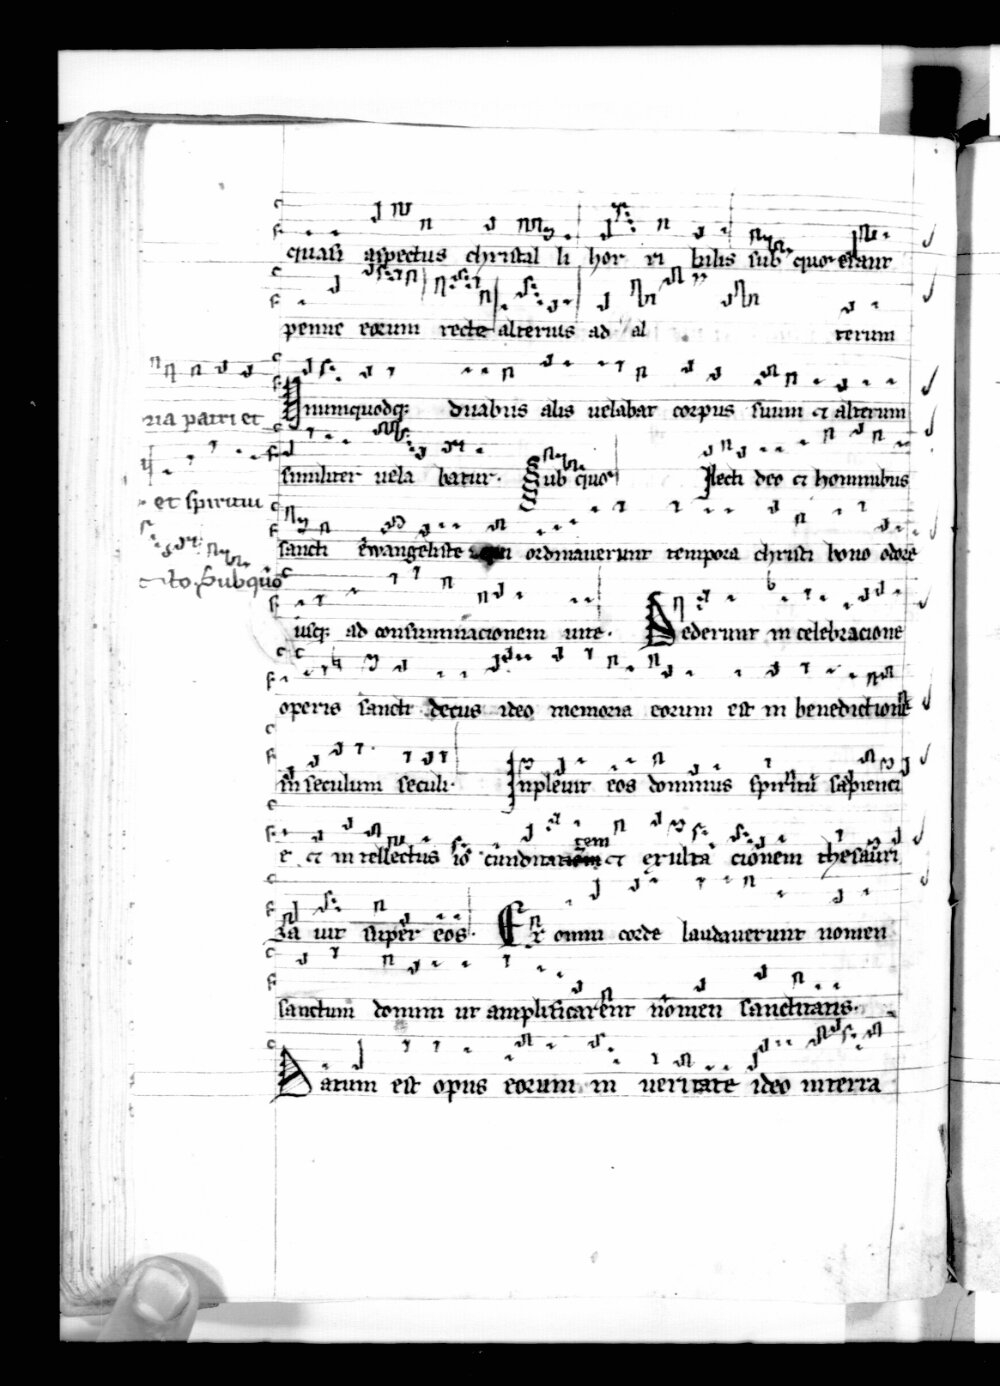 quasi aspectus christal li hor ri bilis sub quo erant
penne eorum recte alterius ad al terum
Unumquodq; duabus alis uelabat corpus suum et alterum
ria patri et
similiter uela batur. Sub quo Ilecti deo et hominibus
et spiritui
sancti ewangeliste ordinauerunt tempora christi bono odore
cto. Sub quo
usq; ad consummacionem uite. Dederunt in celebracione
operis sancti decus ideo memoria eorum est in benedictione
in seculum seculi. Inpleuit eos dominus spiritu sapienci
e et in tellectus io cunditatem et exulta cionem thesauri
za uit super eos. Ex omni corde laudauerunt nomen
sanctum domini ut amplificarent nomen sanctitatis.
Datum est opus eorum in ueritate ideo in terra